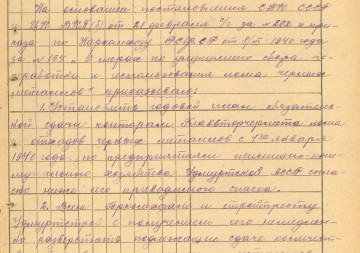 На основании постановления СНК СССР
и ЦК ВКП(б) от 21 февраля с/г за № 282 и при-
каза по Наркомхозу РСФСР от 8/III-1940 года
за № 164 "О мерах по улучшению сбора по
разработки и использования лома черных
металлов" приказываю:
1. Установить годовой план обязатель-
ной сдачи конторам Главвторчермета лома
и отходов черных металлов с 1го января
1940 года, по предприятиям жилищно-ком-
мунального хозяйства Удмуртской АССР соглас-
но ниже его приводимого списка.
2. Всем Горкомхозам и стройтресту
Удмуртстрой с получением его немедлен-
но разверстать подлежащие сдаче количест-